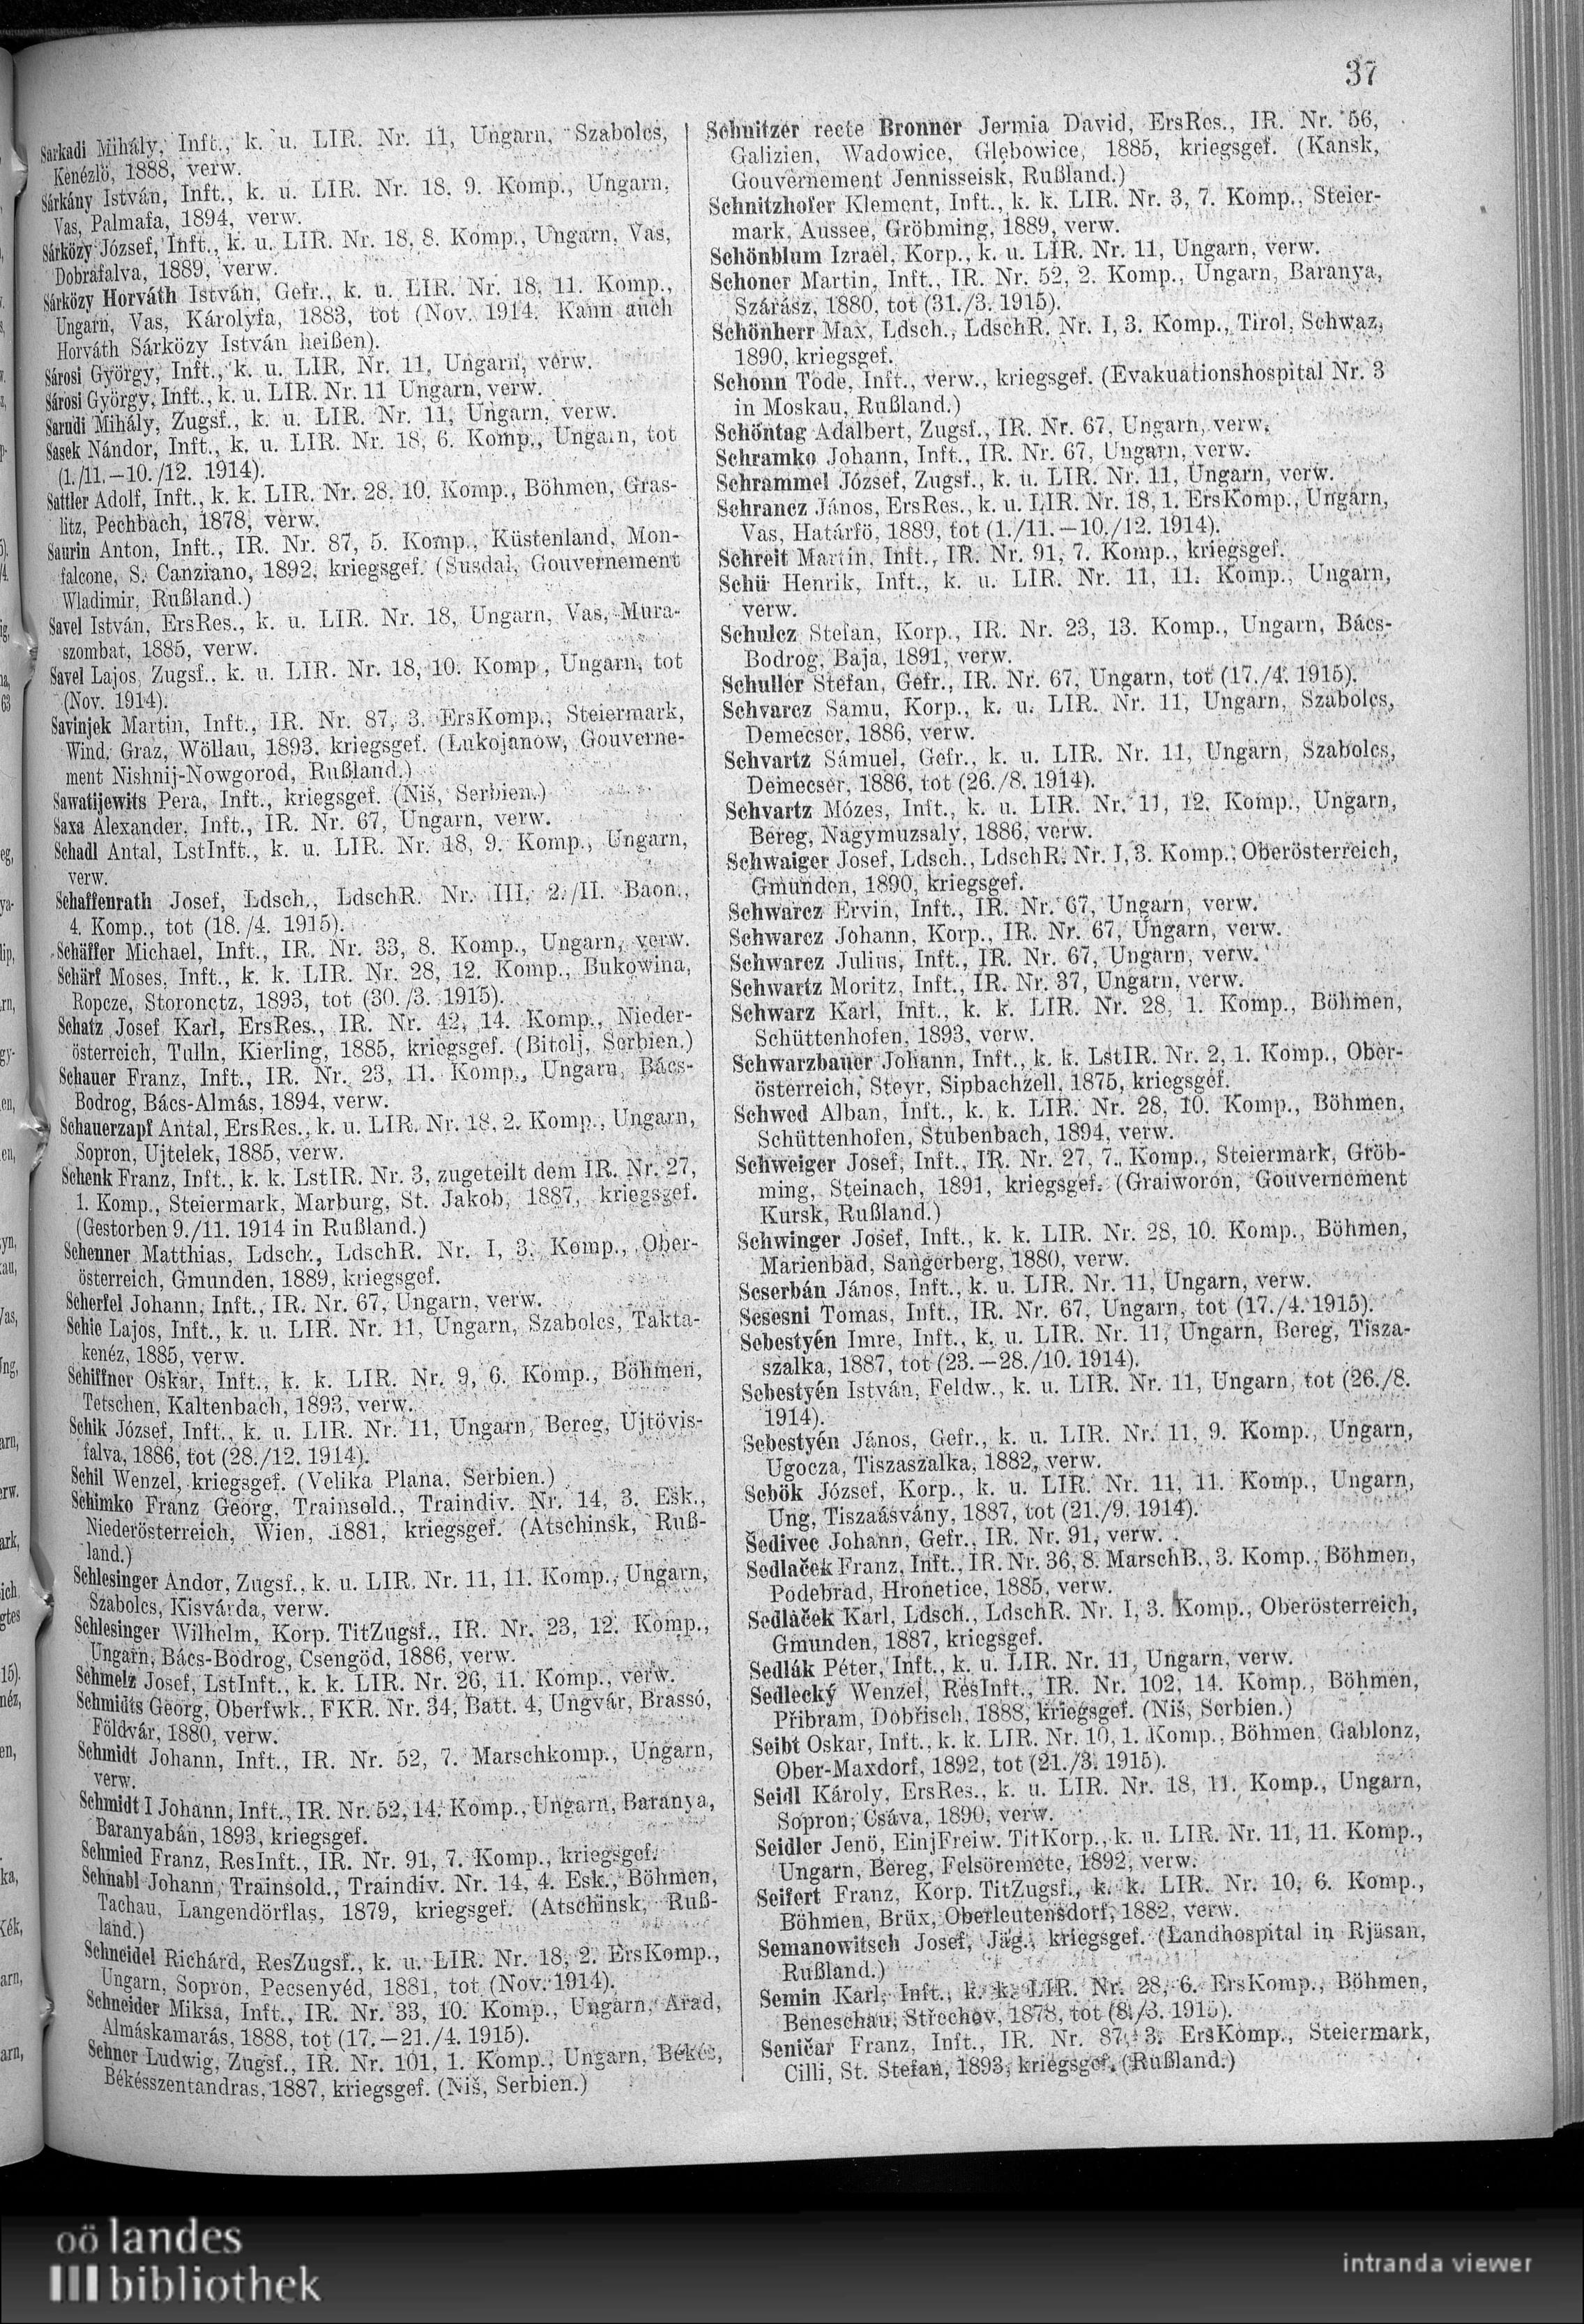 37
Sarkadi Mihály, Inft., k. u. LIR. Nr. 11, Ungarn, Szabolcs,
Kenézlö, 1888, verw.
Sárkány István, Inft., k. u. LIR. Nr. 18, 9. Komp., Ungarn,
Vas, Palmafa, 1894, verw.
Sárközy József, Inft., k. u. LIR. Nr. 18, 8. Komp., Ungarn, Vas,
Dobrafalva, 1889, verw.
Sárközy Horváth István, Gefr., k. u. LIR. Nr. 18, 11. Komp.,
Ungarn, Vas, Károlyfa, 1883, tot (Nov. 1914. Kann auch
Horváth Sárközy István heißen).
Sárosi György, Inft., k. u. LIR. Nr. 11, Ungarn, verw.
Sárosi György, Inft., k. u. LIR. Nr. 11 Ungarn, verw.
Sarudi Mihály, Zugsf., k. u. LIR. Nr. 11, Ungarn, verw.
Sasek Nándor, Inft., k. u. LIR. Nr. 18, 6. Komp., Ungarn, tot
(1./11.—10./12. 1914).
Sattler Adolf, Inft., k. k. LIR. Nr. 28, 10. Komp., Böhmen, Gras-
litz, Pechbach, 1878, verw.
Saurin Anton, Inft., IR. Nr. 87, 5. Komp., Küstenland, Mon-
falcone, S. Canziano, 1892, kriegsgef. (Susdal, Gouvernement
Wladimir, Rußland.)
Savel István, ErsRes., k. u. LIR. Nr. 18, Ungarn, Vas, Mura-
szombat, 1885, verw.
Savel Lajos, Zugsf., k. u. LIR. Nr. 18, 10. Komp., Ungarn, tot
(Nov. 1914).
Savinjek Martin, Inft., IR. Nr. 87, 3. ErsKomp., Steiermark,
Wind. Graz, Wöllau, 1893, kriegsgef. (Lukojanow, Gouverne-
ment Nishnij-Nowgorod, Rußland.)
Sawatijewits Pera, Inft., kriegsgef. (Niš, Serbien.)
Saxa Alexander, Inft., IR. Nr. 67, Ungarn, verw.
Schadl Antal, LstInft., k. u. LIR. Nr. 18, 9. Komp., Ungarn,
verw.
Schaffenrath Josef, Ldsch., LdschR. Nr. III, 2./II. Baon.,
4. Komp., tot (18./4. 1915).
Schäffer Michael, Inft., IR. Nr. 33, 8. Komp., Ungarn, verw.
Schärf Moses, Inft., k. k. LIR. Nr. 28, 12. Komp., Bukowina,
Ropcze, Storonetz, 1893, tot (30./3. 1915).
Schatz Josef Karl, ErsRes., IR. Nr. 42, 14. Komp., Nieder-
österreich, Tulln, Kierling, 1885, kriegsgef. (Bitolj, Serbien.)
Schauer Franz, Inft., IR. Nr. 23, 11. Komp., Ungarn, Bács-
Bodrog, Bács-Almás, 1894, verw.
Schauerzapf Antal, ErsRes., k. u. LIR. Nr. 18, 2. Komp., Ungarn,
Sopron, Ujtelek, 1885, verw.
Schenk Franz, Inft., k. k. LstIR. Nr. 3, zugeteilt dem IR. Nr. 27,
1. Komp., Steiermark, Marburg, St. Jakob, 1887, kriegsgef.
(Gestorben 9./11. 1914 in Rußland.)
Schenner Matthias, Ldsch., LdschR. Nr. I, 3. Komp., Ober-
österreich, Gmunden, 1889, kriegsgef.
Scherfel Johann, Inft., IR. Nr. 67, Ungarn, verw.
Schie Lajos, Inft., k. u. LIR. Nr. 11, Ungarn, Szabolcs, Takta-
kenéz, 1885, verw.
Schiffner Oskar, Inft., k. k. LIR. Nr. 9, 6. Komp., Böhmen,
Tetschen, Kaltenbach, 1893, verw.
Schik József, Inft., k. u. LIR. Nr. 11, Ungarn, Bereg, Ujtövis-
falva, 1886, tot (28./12. 1914).
Schil Wenzel, kriegsgef. (Velika Plana, Serbien.)
Schimko Franz Georg, Trainsold., Traindiv. Nr. 14, 3. Esk.,
Niederösterreich, Wien, 1881, kriegsgef. (Atschinsk, Ruß-
land.)
Schlesinger Andor, Zugsf., k. u. LIR. Nr. 11, 11. Komp., Ungarn,
Szabolcs, Kisvárda, verw.
Schlesinger Wilhelm, Korp. TitZugsf., IR. Nr. 23, 12. Komp.,
Ungarn, Bács-Bodrog, Csengöd, 1886, verw.
Schmelz Josef, LstInft., k. k. LIR. Nr. 26, 11. Komp., verw.
Schmidts Georg, Oberfwk., FKR. Nr. 34, Batt. 4, Ungvár, Brassó,
Földvár, 1880, verw.
Schmidt Johann, Inft., IR. Nr. 52, 7. Marschkomp., Ungarn,
verw.
Schmidt I Johann, Inft., IR. Nr. 52, 14. Komp., Ungarn, Baranya,
Baranyabán, 1893, kriegsgef.
Schmied Franz, ResInft., IR. Nr. 91, 7. Komp., kriegsgef.
Schnabl Johann, Trainsold., Traindiv. Nr. 14, 4. Esk., Böhmen,
Tachau, Langendörflas, 1879, kriegsgef. (Atschinsk, Ruß-
land.)
Schneidel Richárd, ResZugsf., k. u. LIR. Nr. 18, 2. ErsKomp.,
Ungarn, Sopron, Pecsenyéd, 1881, tot (Nov. 1914).
Schneider Miksa, Inft., IR. Nr. 33, 10. Komp., Ungarn, Arad,
Almáskamarás, 1888, tot (17.—21./4. 1915).
Schner Ludwig, Zugsf., IR. Nr. 101, 1. Komp., Ungarn, Békés,
Békésszentandras, 1887, kriegsgef. (Niš, Serbien.)
Schnitzer recte Bronner Jermia David, ErsRes., IR. Nr. 56,
Galizien, Wadowice, Glębowice, 1885, kriegsgef. (Kansk,
Gouvernement Jennisseisk, Rußland.)
Schnitzhofer Klement, Inft., k. k. LIR. Nr. 3, 7. Komp., Steier-
mark, Aussee, Gröbming, 1889, verw.
Schönblum Izrael, Korp., k. u. LIR. Nr. 11, Ungarn, verw.
Schoner Martin, Inft., IR. Nr. 52, 2. Komp., Ungarn, Baranya,
Szárász, 1880, tot (31./3. 1915).
Schönherr Max, Ldsch., LdschR. Nr. I, 3. Komp., Tirol, Schwaz,
1890, kriegsgef.
Schonn Tode, Inft., verw., kriegsgef. (Evakuationshospital Nr. 3
in Moskau, Rußland.)
Schöntag Adalbert, Zugsf., IR. Nr. 67, Ungarn, verw.
Schramko Johann, Inft., IR. Nr. 67, Ungarn, verw.
Schrammel József, Zugsf., k. u. LIR. Nr. 11, Ungarn, verw.
Schrancz János, ErsRes., k. u. LIR. Nr. 18, 1. ErsKomp., Ungarn,
Vas, Határfö, 1889, tot (1./11.—10./12. 1914).
Schreit Martin, Inft., IR. Nr. 91, 7. Komp., kriegsgef.
Schü Henrik, Inft., k. u. LIR. Nr. 11, 11. Komp., Ungarn,
verw.
Schulcz Stefan, Korp., IR. Nr. 23, 13. Komp., Ungarn, Bács-
Bodrog, Baja, 1891, verw.
Schuller Stefan, Gefr., IR. Nr. 67, Ungarn, tot (17./4. 1915).
Schvarcz Samu, Korp., k. u. LIR. Nr. 11, Ungarn, Szabolcs,
Demecser, 1886, verw.
Schvartz Sámuel, Gefr., k. u. LIR. Nr. 11, Ungarn, Szabolcs,
Demecser, 1886, tot (26./8. 1914).
Schvartz Mózes, Inft., k. u. LIR. Nr. 11, 12. Komp., Ungarn,
Bereg, Nagymuzsaly, 1886, verw.
Schwaiger Josef, Ldsch., LdschR. Nr. I, 3. Komp., Oberösterreich,
Gmunden, 1890, kriegsgef.
Schwarcz Ervin, Inft., IR. Nr. 67, Ungarn, verw.
Schwarcz Johann, Korp., IR. Nr. 67, Ungarn, verw.
Schwarcz Julius, Inft., IR. Nr. 67, Ungarn, verw.
Schwartz Moritz, Inft., IR. Nr. 37, Ungarn, verw.
Schwarz Karl, Inft., k. k. LIR. Nr. 28, 1. Komp., Böhmen,
Schüttenhofen, 1893, verw.
Schwarzbauer Johann, Inft., k. k. LstIR. Nr. 2, 1. Komp., Ober-
österreich, Steyr, Sipbachzell, 1875, kriegsgef.
Schwed Alban, Inft., k. k. LIR. Nr. 28, 10. Komp., Böhmen,
Schüttenhofen, Stubenbach, 1894, verw.
Schweiger Josef, Inft., IR. Nr. 27, 7. Komp., Steiermark, Gröb-
ming, Steinach, 1891, kriegsgef. (Graiworon, Gouvernement
Kursk, Rußland.)
Schwinger Josef, Inft., k. k. LIR. Nr. 28, 10. Komp., Böhmen,
Marienbad, Sangerberg, 1880, verw.
Scserbán János, Inft., k. u. LIR. Nr. 11, Ungarn, verw.
Scsesni Tomas, Inft., IR. Nr. 67, Ungarn, tot (17./4. 1915).
Sebestyén Imre, Inft., k. u. LIR. Nr. 11, Ungarn, Bereg, Tisza-
szalka, 1887, tot (23.—28./10. 1914).
Sebestyén István, Feldw., k. u. LIR. Nr. 11, Ungarn, tot (26./8.
1914).
Sebestyén János, Gefr., k. u. LIR. Nr. 11, 9. Komp., Ungarn,
Ugocza, Tiszaszalka, 1882, verw.
Sebök József, Korp., k. u. LIR. Nr. 11, 11. Komp., Ungarn,
Ung, Tiszaásvány, 1887, tot (21./9. 1914).
Šedivec Johann, Gefr., IR. Nr. 91, verw.
Sedlaček Franz, Inft., IR. Nr. 36, 8. MarschB., 3. Komp., Böhmen,
Podebrad, Hronetice, 1885, verw.
Sedlaček Karl, Ldsch., LdschR. Nr. I, 3. Komp., Oberösterreich,
Gmunden, 1887, kriegsgef.
Sedlák Péter, Inft., k. u. LIR. Nr. 11, Ungarn, verw.
Sedlecký Wenzel, ResInft., IR. Nr. 102, 14. Komp., Böhmen,
Přibram, Dobřisch, 1888, kriegsgef. (Niš, Serbien.)
Seibt Oskar, Inft., k. k. LIR. Nr. 10, 1. Komp., Böhmen, Gablonz,
Ober-Maxdorf, 1892, tot (21./3. 1915).
Seidl Károly, ErsRes., k. u. LIR. Nr. 18, 11. Komp., Ungarn,
Sopron, Csáva, 1890, verw.
Seidler Jenö, EinjFreiw. TitKorp., k. u. LIR. Nr. 11, 11. Komp.,
Ungarn, Bereg, Felsöremete, 1892, verw.
Seifert Franz, Korp. TitZugsf., k. k. LIR. Nr. 10, 6. Komp.,
Böhmen, Brüx, Oberleutensdorf, 1882, verw.
Semanowitsch Josef, Jäg., kriegsgef. (Landhospital in Rjäsan,
Rußland.)
Semin Karl, Inft., k. k. LIR. Nr. 28, 6. ErsKomp., Böhmen,
Beneschau, Střechov, 1878, tot (8./3. 1915).
Seničar Franz, Inft., IR. Nr. 87, 3. ErsKomp., Steiermark,
Cilli, St. Stefan, 1893, kriegsgef. (Rußland.)
oö landes
bibliothek
intranda viewer